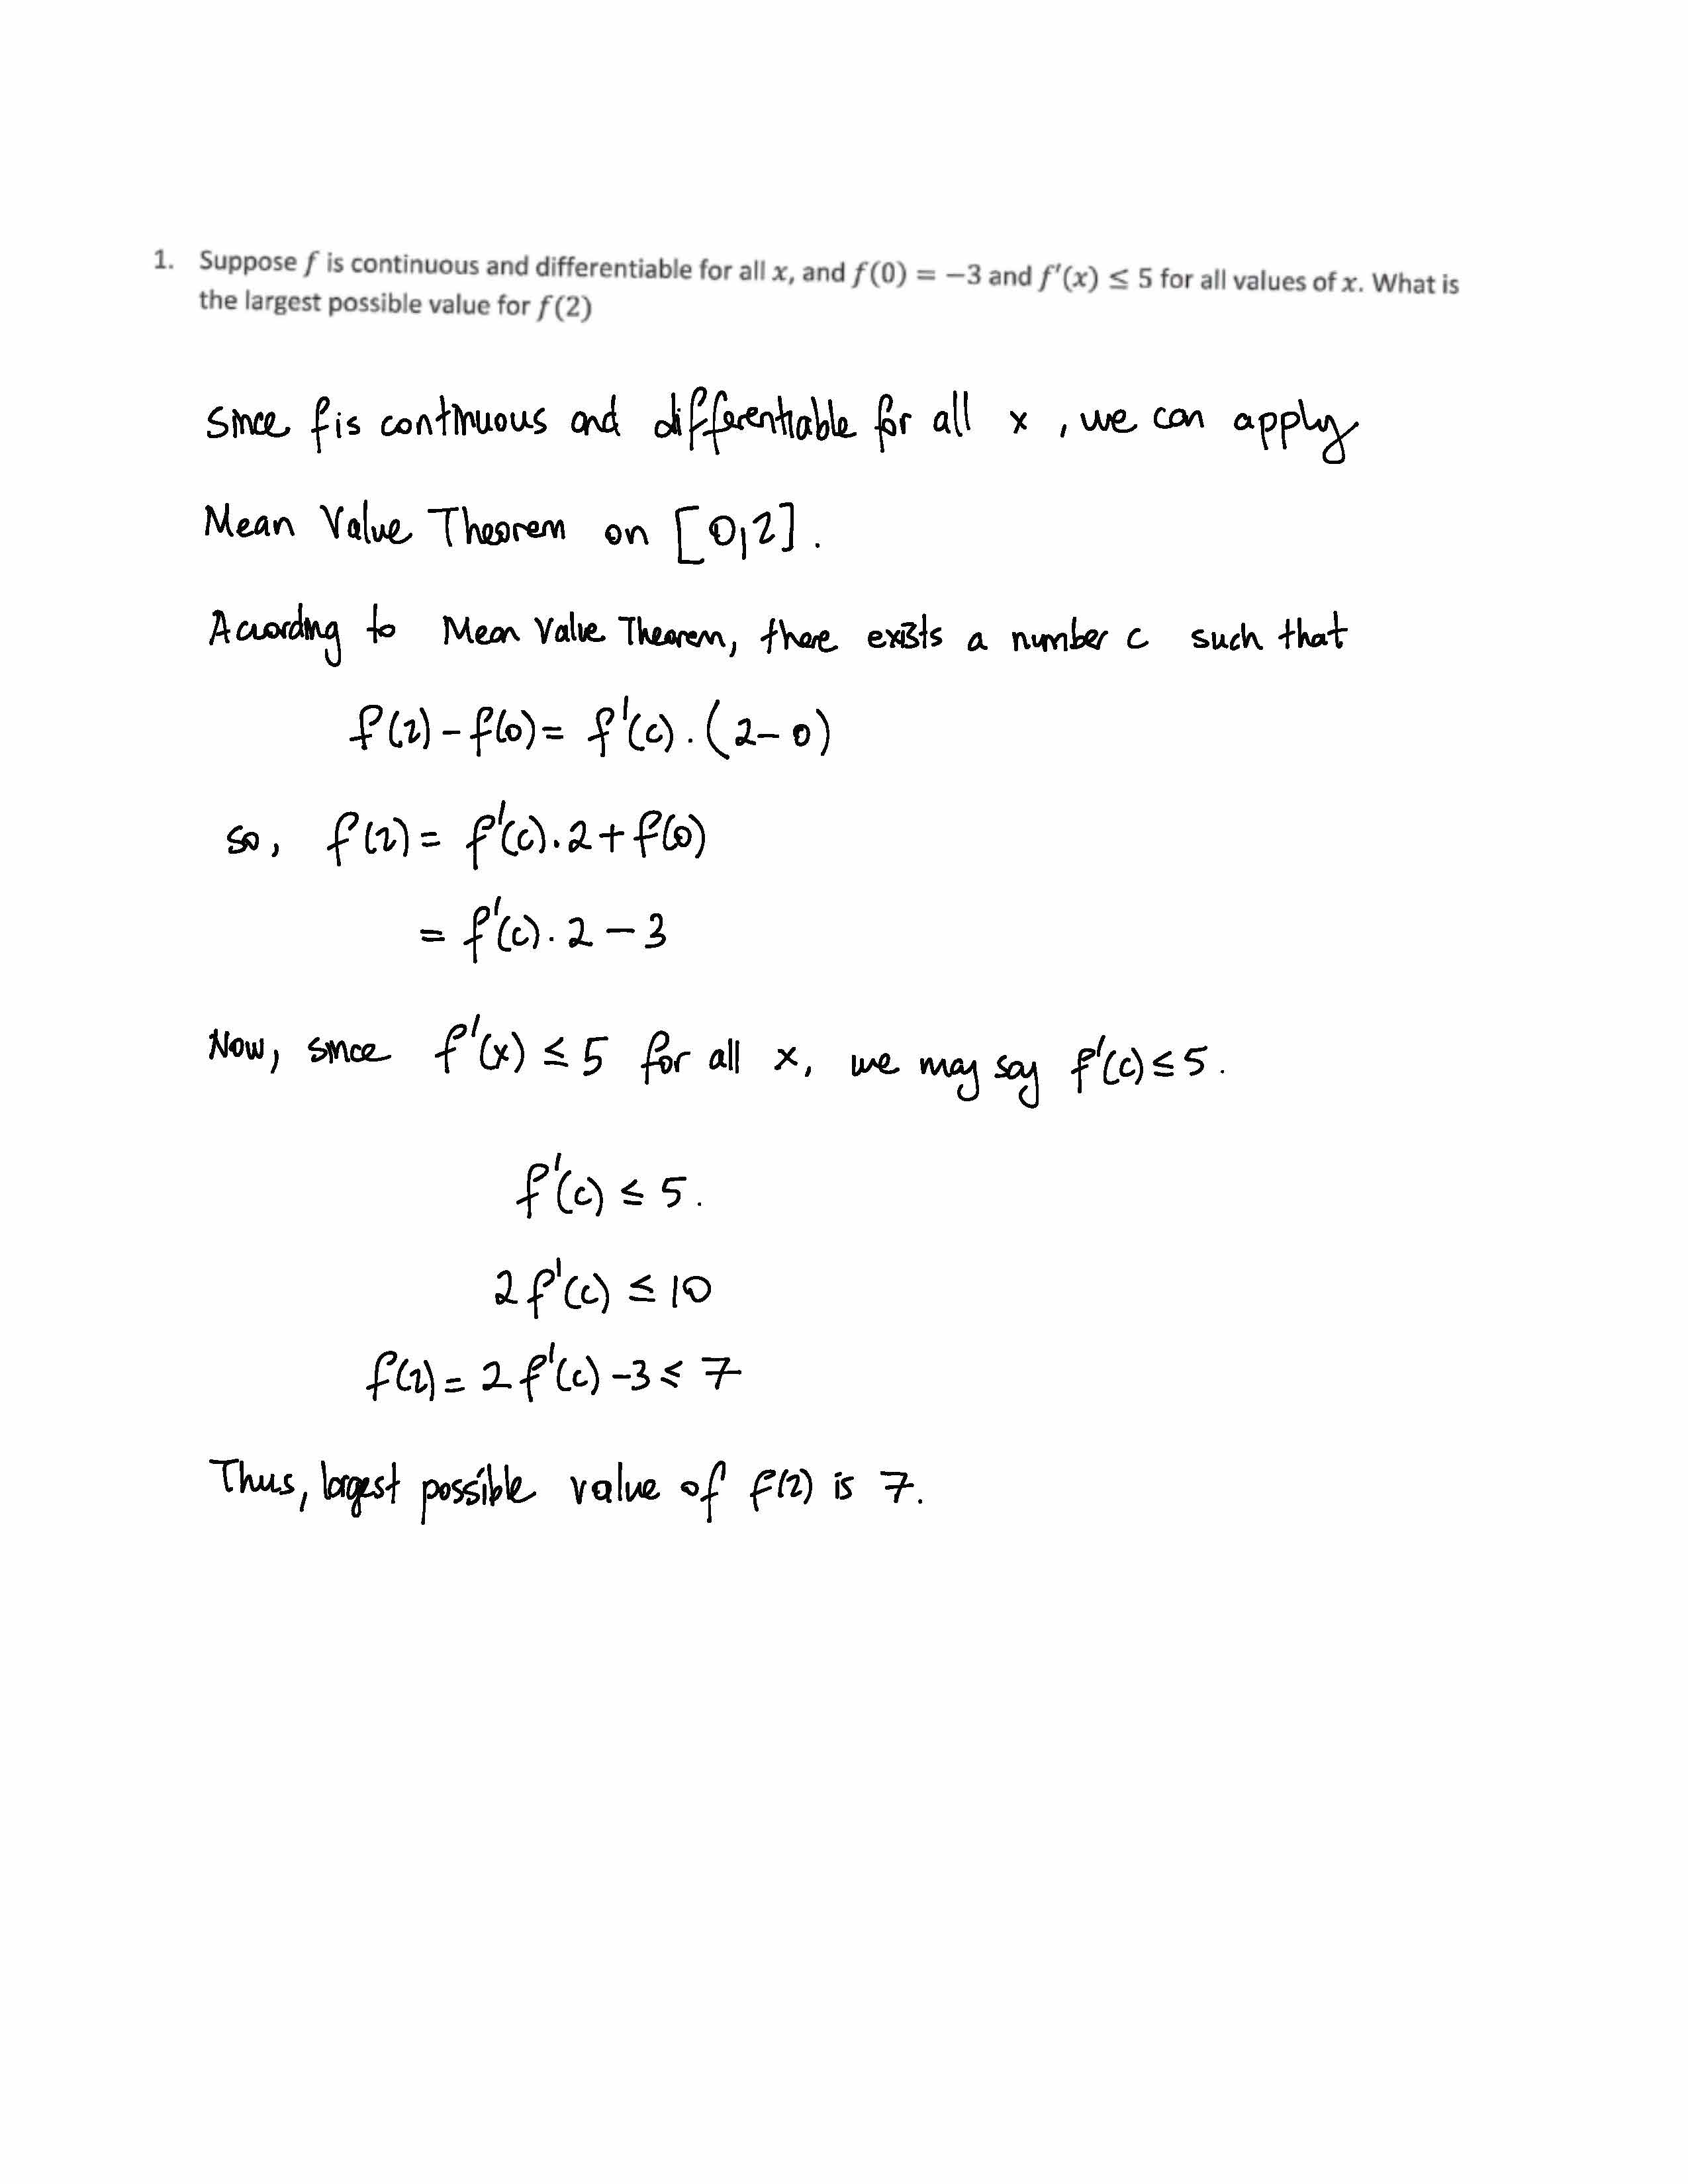 1. Suppose f is continuous and differentiable for all x, and f(0) = −3 and f′(x) ≤ 5 for all values of x. What is
the largest possible value for f(2)
Since f is continuous and differentiable for all x, we can apply
Mean Value Theorem on [0,2].
According to Mean Value Theorem, there exists a number c such that
f(2) - f(0) = f'(c) . (2-0)
so, f(2) = f'(c).2 + f(0)
= f'(c). 2 - 3
Now, since f'(x) ≤ 5 for all x, we may say f'(c) ≤ 5.
f'(c) ≤ 5.
2 f'(c) ≤ 10
f(2) = 2 f'(c) - 3 ≤ 7
Thus, largest possible value of f(2) is 7.